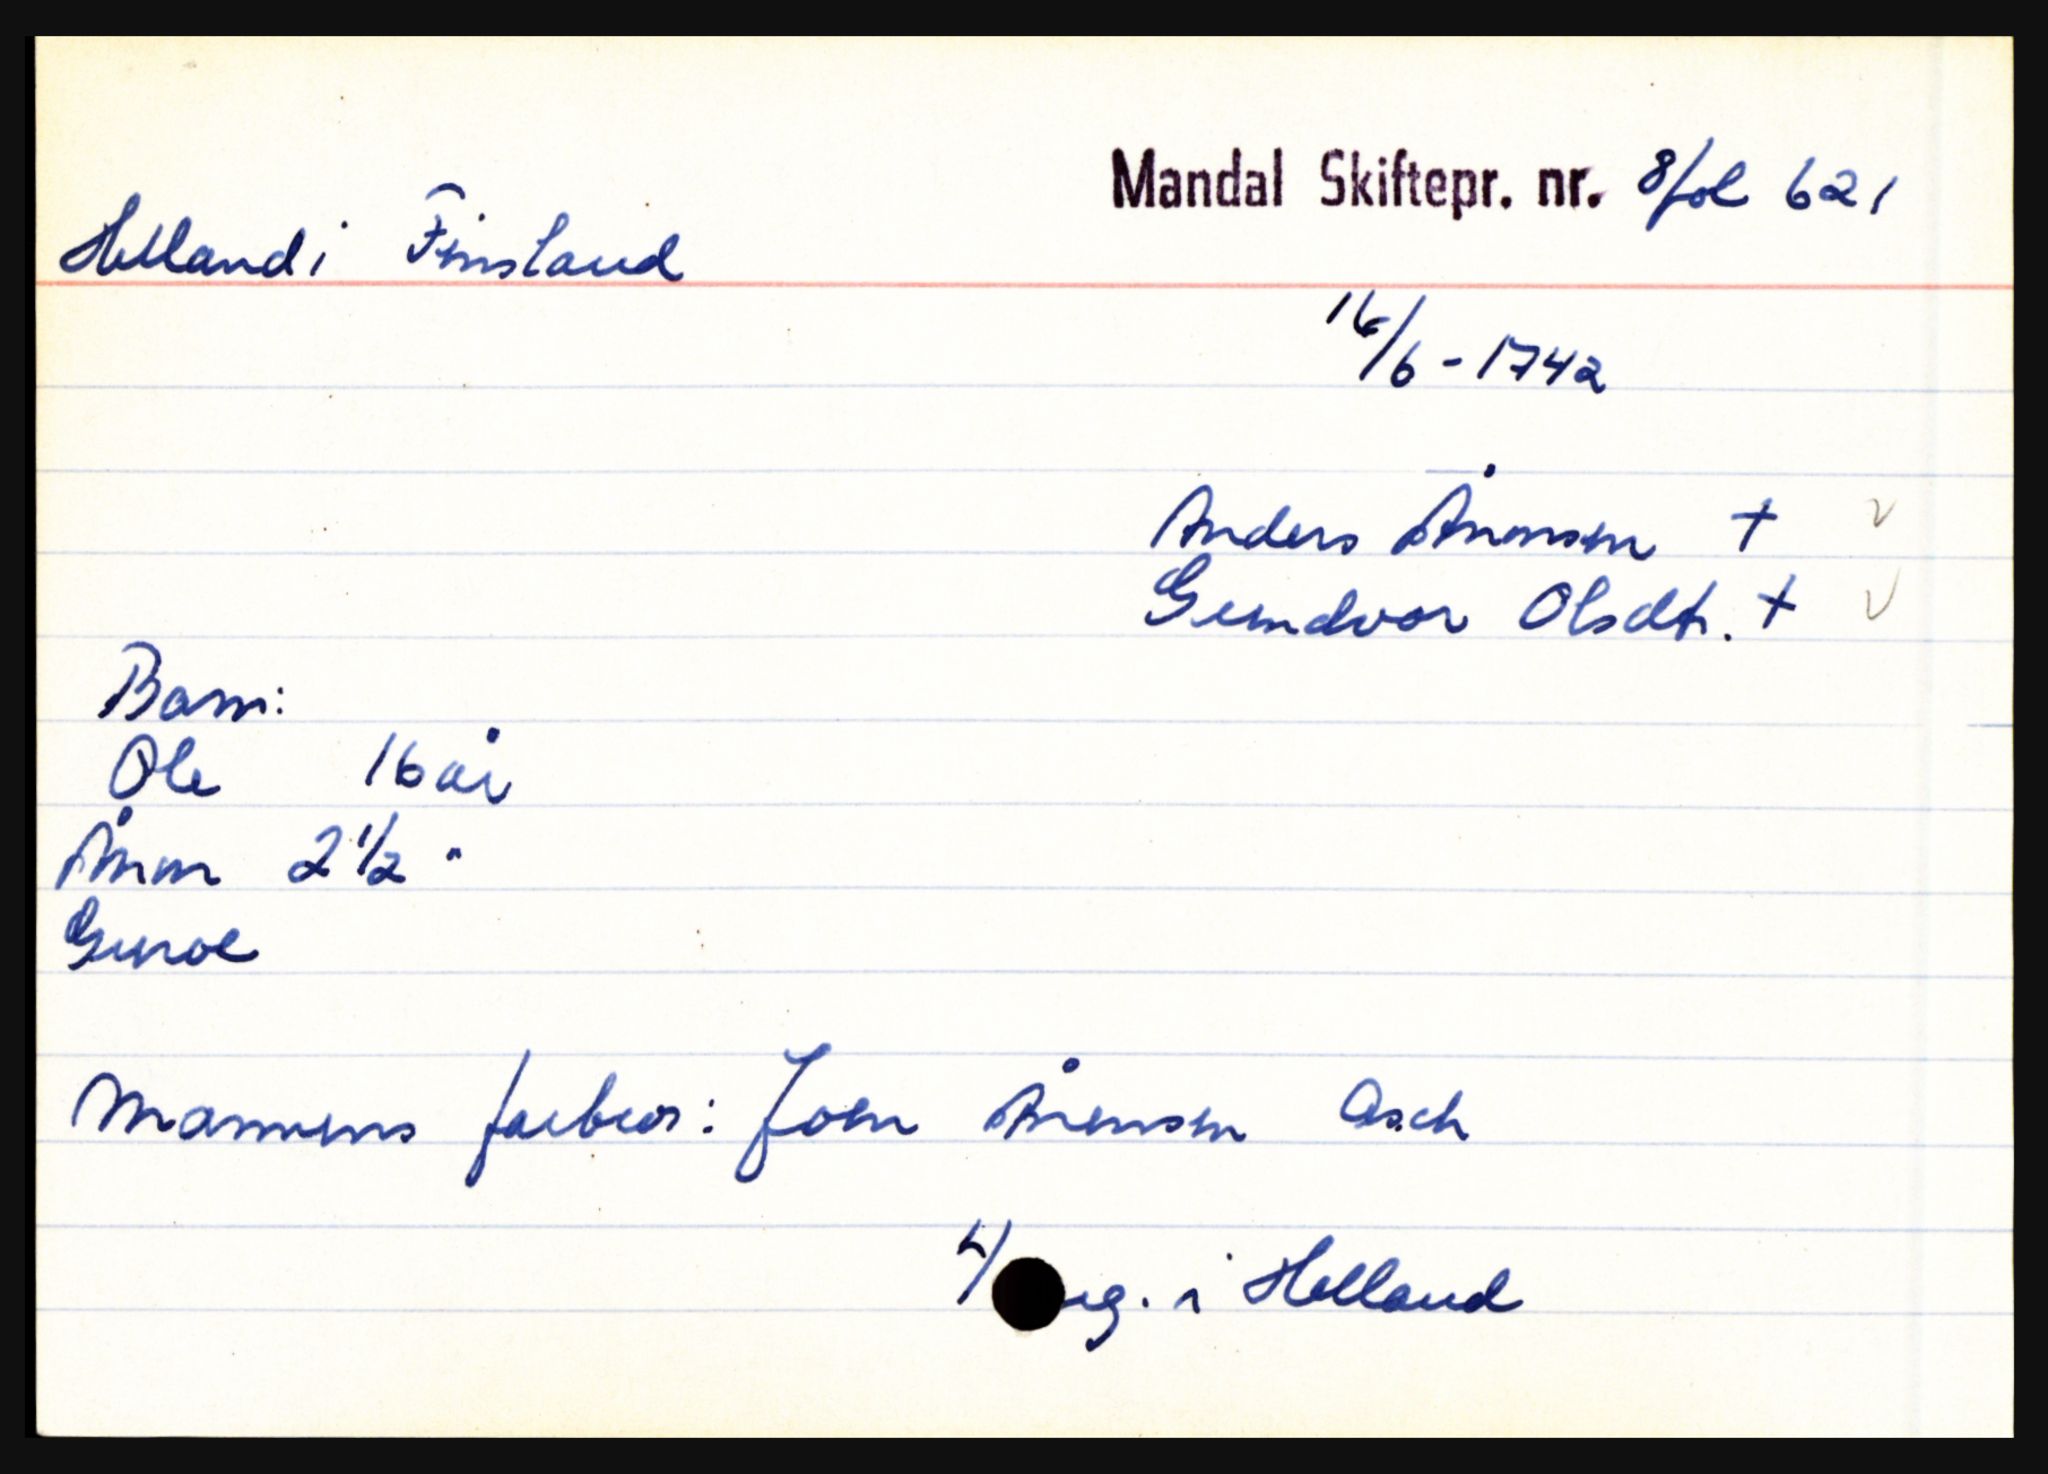 Mandal Skiftepr. nr. 8/fol 621
Helland i Finsland
16/6 - 1742
Anders Ånonsen + v
Gundvor Olsdtr. + v
Barn:
Ole 16 år
Ånon 2 1/2 "
Guroe
Mannens farbror: Joen Ånensen Asch
i Helland